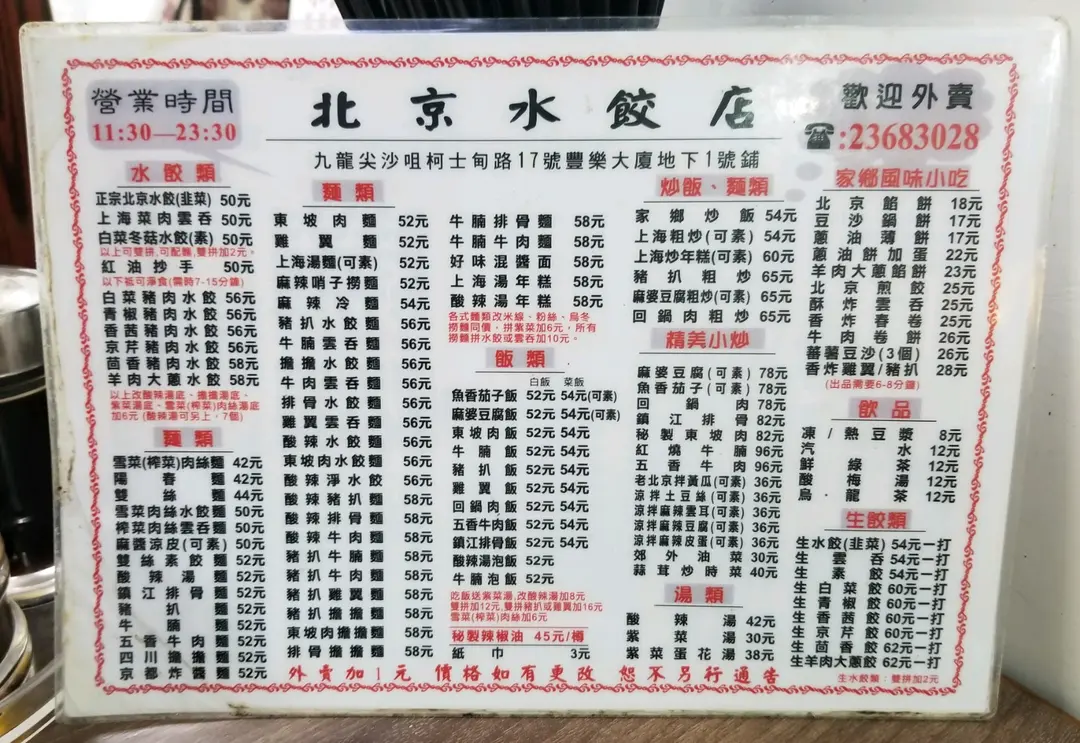 營業時間
11:30—23:30
北京水餃店
九龍尖沙咀柯士甸路17號豐樂大廈地下1號鋪
歡迎外賣
☎:23683028
水餃類
正宗北京水餃(韭菜) 50元
上海菜肉雲吞 50元
白菜冬菇水餃(素) 50元
以上可雙拼,可配麵,雙拼加2元。
紅油抄手 50元
以下祗可淨食(需時7-15分鐘)
白菜豬肉水餃 56元
青椒豬肉水餃 56元
香茜豬肉水餃 56元
京芹豬肉水餃 56元
茴香豬肉水餃 58元
羊肉大蔥水餃 58元
以上改酸辣湯底、擔擔湯底、
紫菜湯底、雪菜(榨菜)肉絲湯底
加6元 (酸辣湯可另上,7個)
麵類
雪菜(榨菜)肉絲麵 42元
陽春麵 42元
雙絲麵 44元
雪菜肉絲水餃麵 50元
榨菜肉絲雲吞麵 50元
麻醬涼皮(可素) 50元
雙絲素餃麵 52元
酸辣湯麵 52元
鎮江排骨麵 52元
豬扒麵 52元
牛腩麵 52元
五香牛肉麵 52元
四川擔擔麵 52元
京都炸醬麵 52元
麵類
東坡肉麵 52元
雞翼麵 52元
上海湯麵(可素) 52元
麻辣哨子撈麵 52元
麻辣冷麵 54元
豬扒水餃麵 56元
牛腩雲吞麵 56元
擔擔水餃麵 56元
牛肉雲吞麵 56元
排骨水餃麵 56元
雞翼雲吞麵 56元
酸辣水餃麵 56元
東坡肉水餃麵 56元
酸辣淨水餃 56元
酸辣豬扒麵 58元
酸辣排骨麵 58元
酸辣牛肉麵 58元
豬扒牛腩麵 58元
豬扒牛肉麵 58元
豬扒雞翼麵 58元
豬扒擔擔麵 58元
東坡肉擔擔麵 58元
排骨擔擔麵 58元
牛腩排骨麵 58元
牛腩牛肉麵 58元
好味混醬面 58元
上海湯年糕 58元
酸辣湯年糕 58元
各式麵類改米線、粉絲、烏冬
撈麵同價,拼紫菜加6元,所有
撈麵拼水餃或雲吞加10元。
飯類
白飯 菜飯
魚香茄子飯 52元 54元(可素)
麻婆豆腐飯 52元 54元(可素)
東坡肉飯 52元 54元
牛腩飯 52元 54元
豬扒飯 52元 54元
雞翼飯 52元 54元
回鍋肉飯 52元 54元
五香牛肉飯 52元 54元
鎮江排骨飯 52元 54元
酸辣湯泡飯 52元
牛腩泡飯 52元
吃飯送紫菜湯,改酸辣湯加8元
雙拼加12元,雙拼豬扒或雞翼加16元
雪菜(榨菜)肉絲加6元
秘製辣椒油 45元/樽
紙巾 3元
炒飯、麵類
家鄉炒飯 54元
上海粗炒(可素) 54元
上海炒年糕(可素) 60元
豬扒粗炒 65元
麻婆豆腐粗炒(可素) 65元
回鍋肉粗炒 65元
精美小炒
麻婆豆腐(可素) 78元
魚香茄子(可素) 78元
回鍋肉 78元
鎮江排骨 82元
秘製東坡肉 82元
紅燒牛腩 96元
五香牛肉 96元
老北京拌黃瓜(可素) 36元
涼拌土豆絲(可素) 36元
涼拌麻辣雲耳(可素) 36元
涼拌麻辣豆腐(可素) 36元
涼拌麻辣皮蛋(可素) 36元
郊外油菜 30元
蒜茸炒時菜 40元
湯類
酸辣湯 42元
紫菜湯 30元
紫菜蛋花湯 38元
家鄉風味小吃
北京餡餅 18元
豆沙鍋餅 17元
蔥油薄餅 17元
蔥油餅加蛋 22元
羊肉大蔥餡餅 23元
北京煎餃 25元
酥炸雲吞 25元
香炸春卷 25元
牛肉卷餅 26元
蕃薯豆沙(3個) 26元
香炸雞翼/豬扒 28元
(出品需要6-8分鐘)
飲品
凍/熱豆漿 8元
汽水 12元
鮮綠茶 12元
酸梅湯 12元
烏龍茶 12元
生餃類
生水餃(韭菜) 54元一打
生雲吞 54元一打
生素餃 54元一打
生白菜餃 60元一打
生青椒餃 60元一打
生香茜餃 60元一打
生京芹餃 60元一打
生茴香餃 62元一打
生羊肉大蔥餃 62元一打
生水餃類:雙拼加2元
外賣加1元 價格如有更改 恕不另行通告